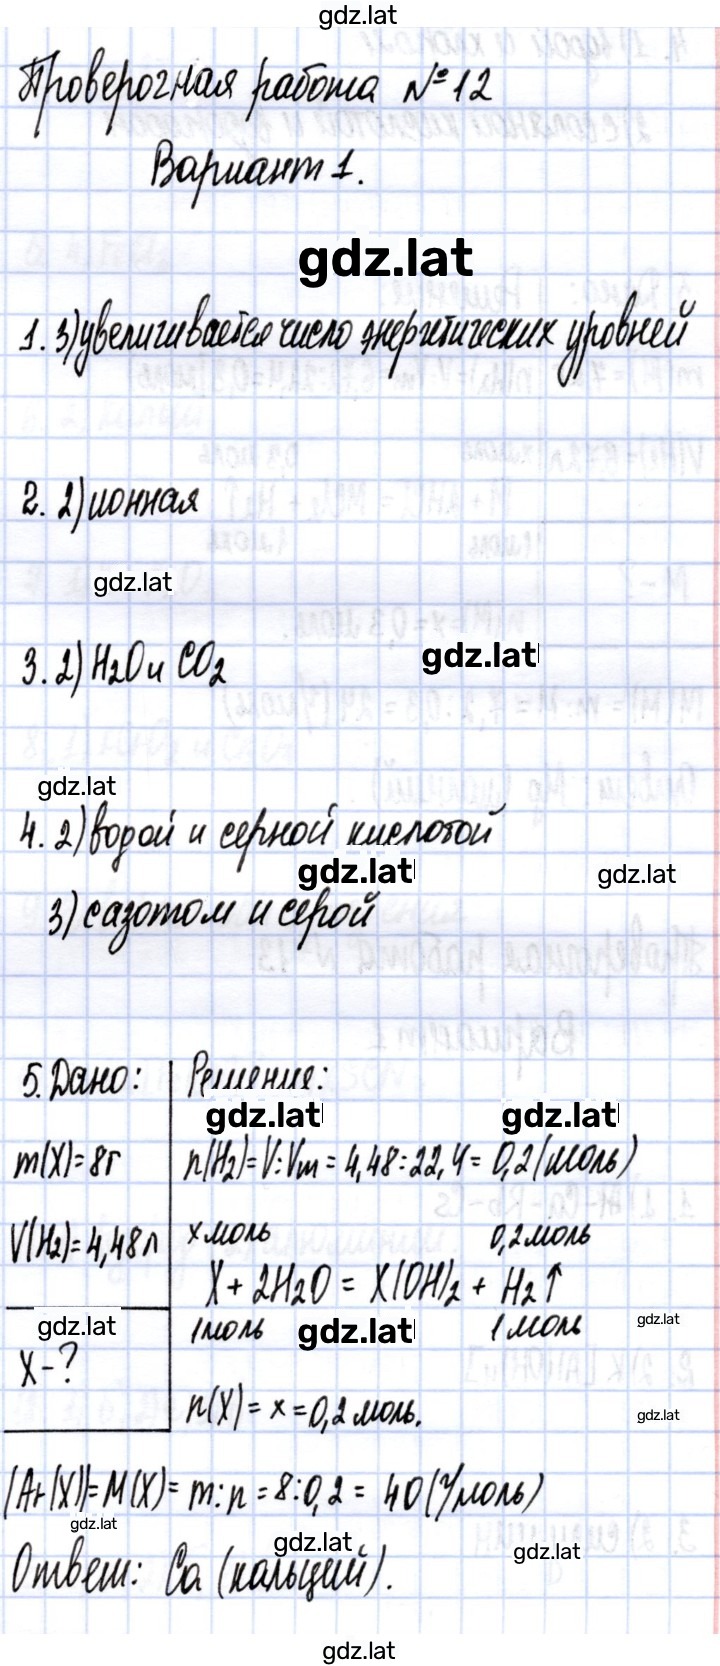 gdz.lat
Проверочная работа №12
Вариант 1.
gdz.lat
1. 3) увеличивается число энергетических уровней
2. 2) ионная
gdz.lat
3. 2) H₂O и CO₂
gdz.lat
gdz.lat
4. 2) водой и серной кислотой
gdz.lat
gdz.lat
3) с азотом и серой
5. Дано: Решение:
gdz.lat gdz.lat
m(X)=8г n(H₂)=V:Vm=4,48:22,4=0,2(моль)
V(H₂)=4,48л x моль 0,2 моль
X + 2H₂O = X(OH)₂ + H₂↑
gdz.lat 1 моль gdz.lat 1 моль gdz.lat
X-?
n(X)=x=0,2 моль.
gdz.lat
(Ar(X))=M(X)=m:n=8:0,2=40(г/моль)
gdz.lat
gdz.lat
gdz.lat
Ответ: Ca (кальций).
gdz.lat